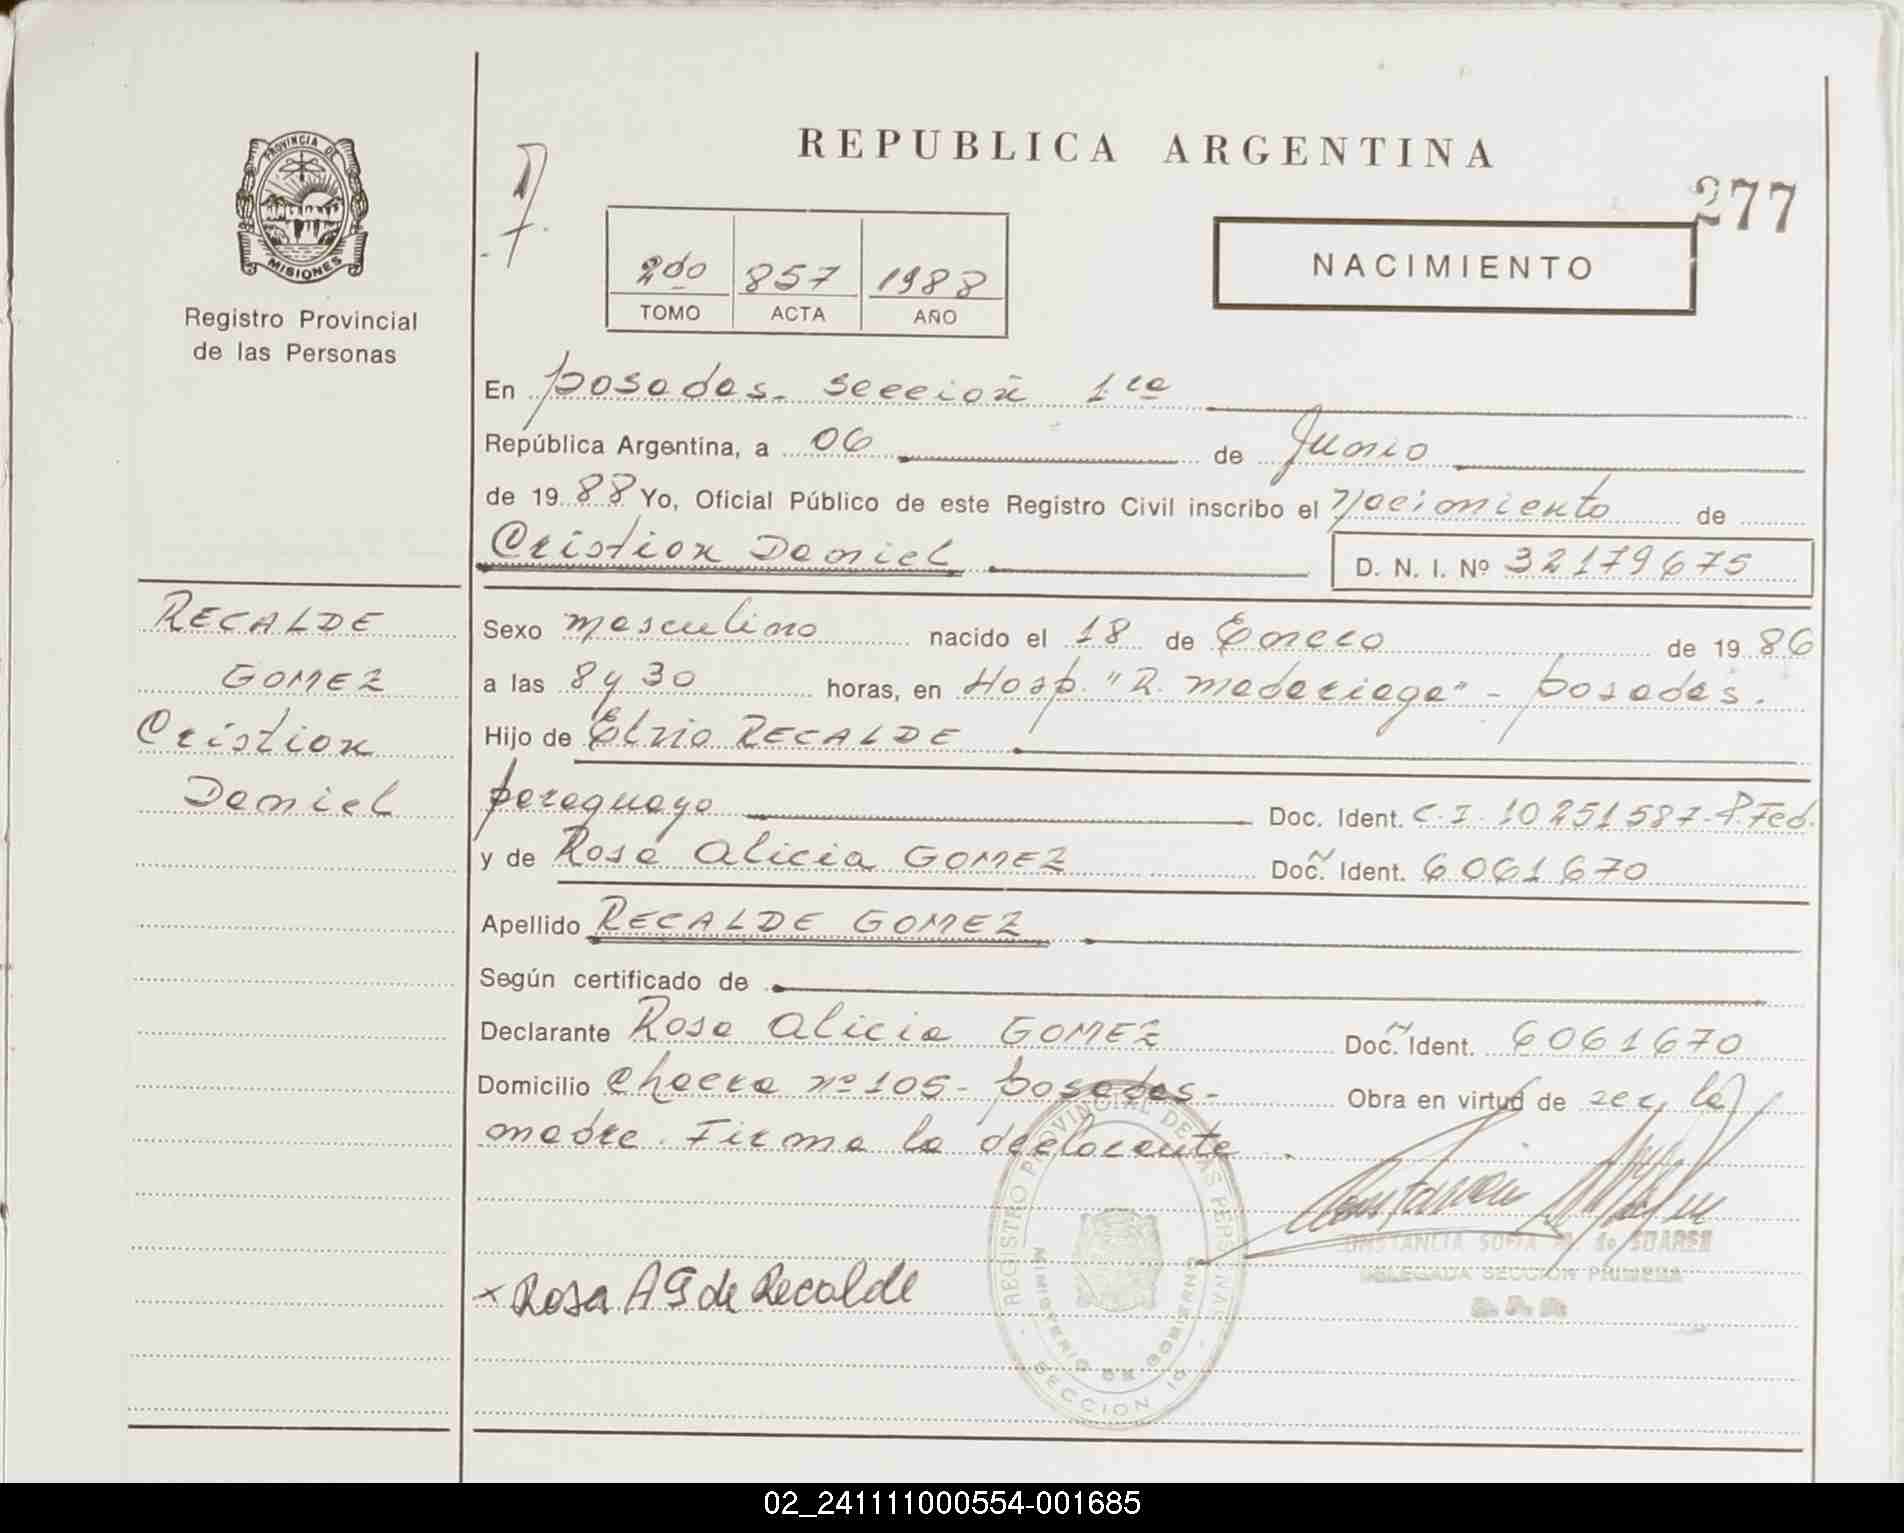 REPUBLICA ARGENTINA
277
PROVINCIA DE
MISIONES
Registro Provincial
de las Personas
2do 857 1988
TOMO ACTA AÑO
NACIMIENTO
En Posadas. Sección 1ra
República Argentina, a 06 de Junio
de 1988 Yo, Oficial Público de este Registro Civil inscribo el Nacimiento de
Cristian Daniel D. N. I. Nº 32179675
RECALDE
GOMEZ
Cristian
Daniel
Sexo masculino nacido el 18 de Enero de 1986
a las 8 y 30 horas, en Hosp. "R. Madariaga" - Posadas.
Hijo de Elvio RECALDE
paraguayo Doc. Ident. C.I. 10251587-P.Fed.
y de Rosa Alicia GOMEZ Doc. Ident. 6061670
Apellido RECALDE GOMEZ
Según certificado de
Declarante Rosa Alicia GOMEZ Doc. Ident. 6061670
Domicilio Chacra nº 105 - Posadas - Obra en virtud de ser la
madre. Firma la declarante.
CONSTANCIA SOFIA M. de SUAREZ
DELEGADA SECCION PRIMERA
x Rosa A G de Recalde
REGISTRO PROVINCIAL DE LAS PERSONAS
MINISTERIO DE GOBIERNO
SECCION 1º
02_241111000554-001685